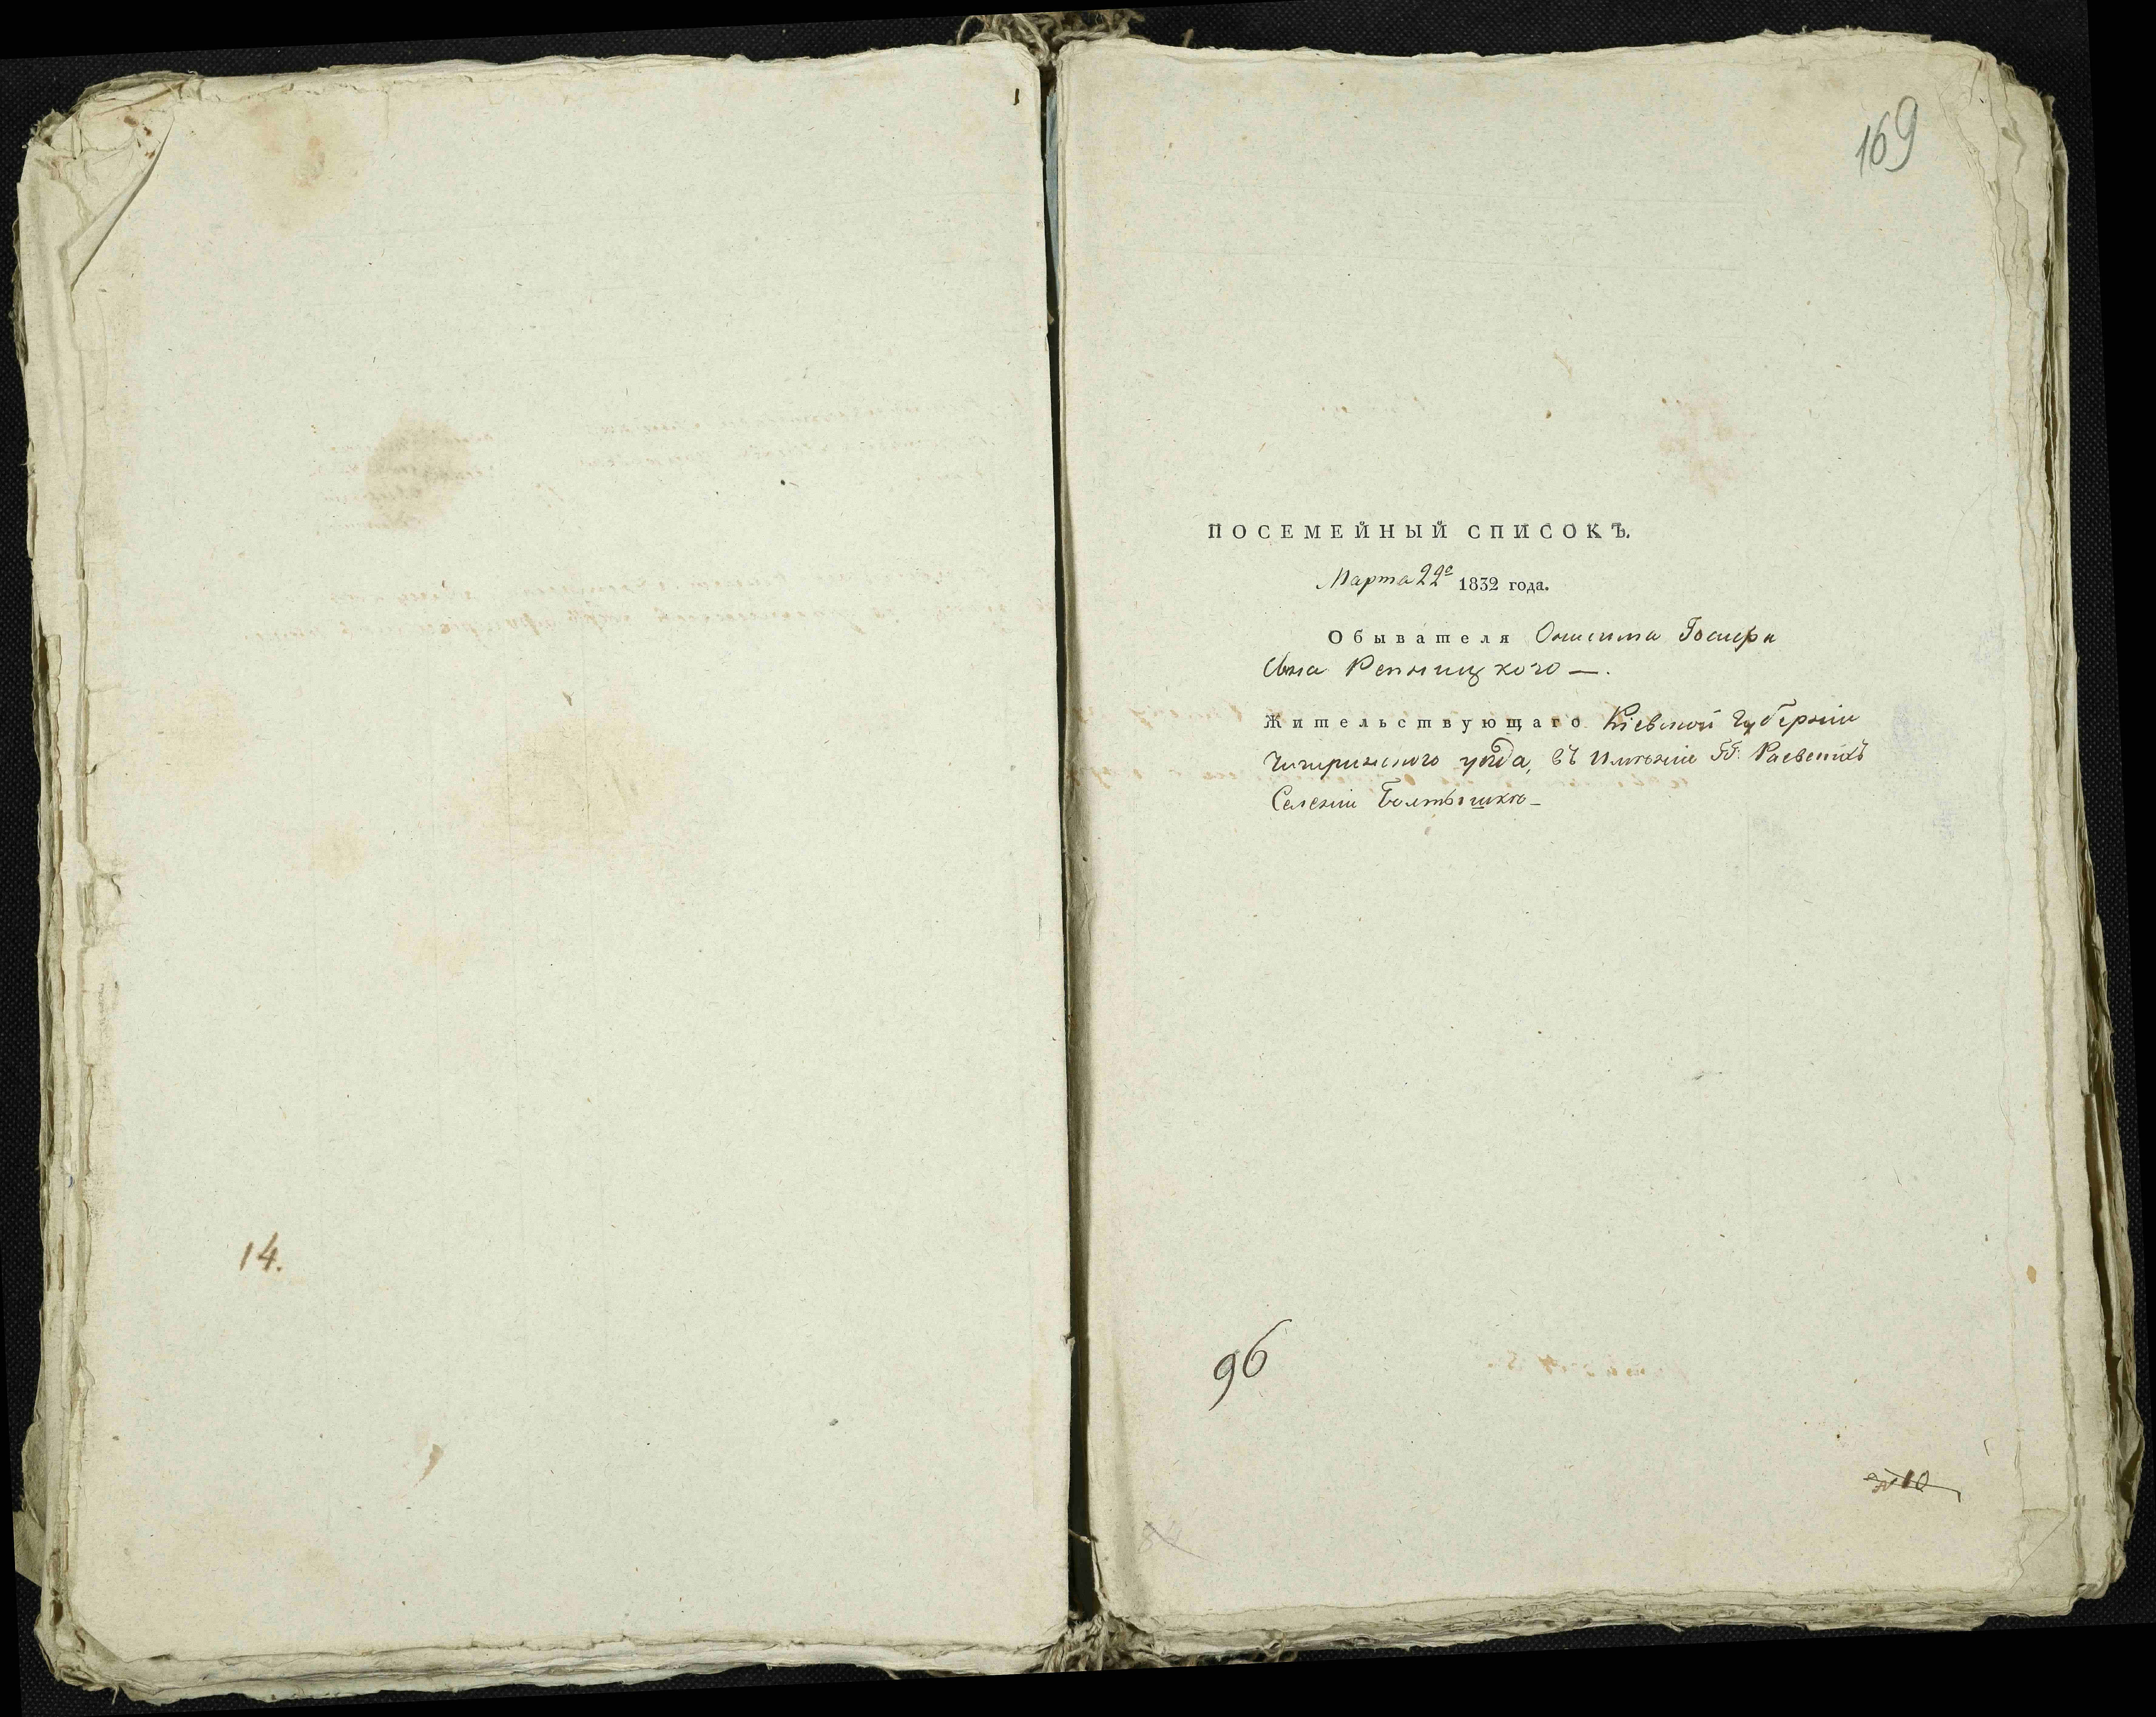 14.
169
ПОСЕМЕЙНЫЙ СПИСОКЪ.
Марта 22го 1832 года.
Обывателя Онисима
Сына Репницкого —.
Жительствующаго Кіевской Губерніи
Чигиринского уѣзда, въ имѣніи ГГ: Раевскихъ
Селеніи Болтышкѣ —
96